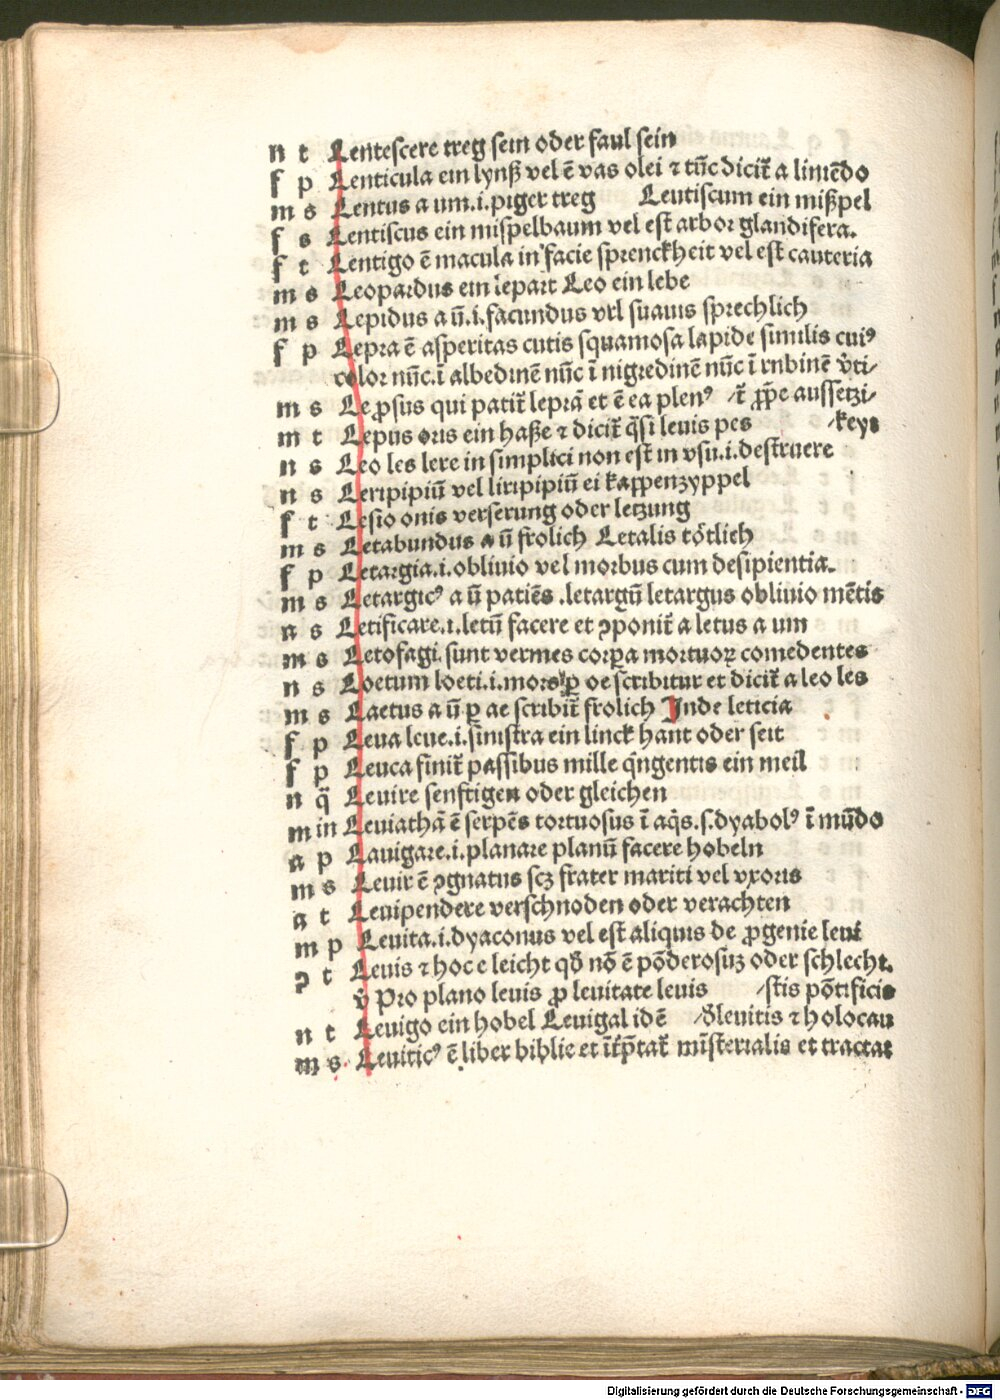 n t Lentescere treg sein oder faul sein
f p Lenticula ein lynß vel ē vas olei ⁊ tūc dicit̃ a liniēdo
m s Lentus a um.i.piger treg Leutiscum ein mißpel
f s Lentiscus ein mispelbaum vel est arbor glandifera.
f t Lentigo ē macula in facie sprenckheit vel est cauteria
m s Leopardus ein lepart Leo ein lebe
m s Lepidus a ū.i.facundus vrl suauis sprechlich
f p Lepra ē asperitas cutis squamosa lapide similis cuiꝰ
color nūc.ī albedinē nūc ī nigredinē nūc ī rubinē v̓ti⸗
m s Leꝓsus qui patit̃ leprā et ē ea plenꝰ ⸝t̃ ꝓp̄e aussetzi⸗
m t Lepus oris ein haße ⁊ dicit̃ q̄si leuis pes ⸝keyt
n s Leo les lere in simplici non est in vsu.i.destruere
n s Leripipiū vel liripipiū ei kappenzyppel
f t Lesio onis verserung oder letzung
m s Letabundus a ū frolich Letalis tötlich
f p Letargia.i.obliuio vel morbus cum desipientia.
m s Letargicꝰ a ū patiēs .letargū letargus obliuio mētis
a s Letificare.i.letū facere et ꝯponit̃ a letus a um
m s Letofagi.sunt vermes corꝑa mortuoꝝ comedentes
n s Loetum loeti.i.mors ꝑ oe scribitur et dicit̃ a leo les
m s Laetus a ū ꝑ ae scribit̃ frolich Inde leticia
f p Leua leue.i.sinistra ein linck hant oder seit
f p Leuca finit̃ passibus mille q̄ngentis ein meil
n q̄ Leuire senftigen oder gleichen
m in Leuiathā ē serpēs tortuosus ī aq̄s.s.dyabolꝰ ī mūdo
a p Lauigare.i.planare planū facere hobeln
m s Leuir ē ꝯgnatus scꝫ frater mariti vel vxoris
a t Leuipendere verschnoden oder verachten
m p Leuita.i.dyaconus vel est aliquis de ꝓgenie leui
ꝯ t Leuis ⁊ hoc e leicht qđ nō ē pōderosuꝫ oder schlecht.
v̓ Pro plano leuis ꝓ leuitate leuis ⸝stis pōtificis
n t Leuigo ein hobel Leuigal idē ⸝đleuitis ⁊ holocau
m s Leuiticꝰ ē liber biblie et īt̄p̄tat̃ mīsterialis et tractat
Digitalisierung gefördert durch die Deutsche Forschungsgemeinschaft - DFG